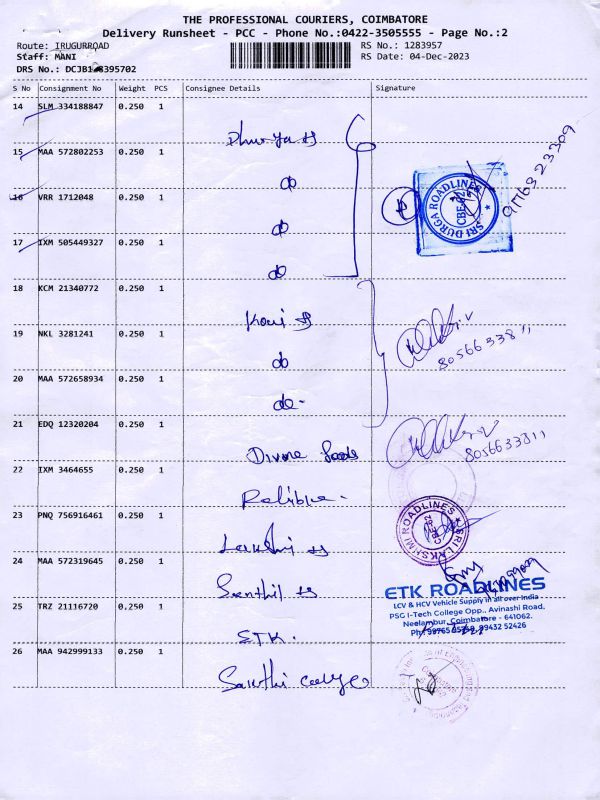 THE PROFESSIONAL COURIERS, COIMBATORE
Delivery Runsheet - PCC - Phone No.:0422-3505555 - Page No.:2
Route: IRUGURROAD
RS No.: 1283957
Staff: MANI
RS Date: 04-Dec-2023
DRS No.: DCJB1 8395702
S No Consignment No Weight PCS Consignee Details Signature
14 SLM 334188847 0.250 1
15 MAA 572802253 0.250 1
16 VRR 1712048 0.250 1
do
17 IXM 505449327 0.250 1
do
SRI DURGA ROADLINES
CBE-62
18 KCM 21340772 0.250 1
do
19 NKL 3281241 0.250 1
8056633811
20 MAA 572658934 0.250 1
do
21 EDQ 12320204 0.250 1
do-
22 IXM 3464655 0.250 1
Divine
8056633811
23 PNQ 756916461 0.250 1
SRI LAKSHMI ROADLINES
CBE-62
24 MAA 572319645 0.250 1
Lakshmi
25 TRZ 21116720 0.250 1
Senthil
ETK ROADLINES
LCV & HCV Vehicle Supply in all over India
PSG I-Tech College Opp., Avinashi Road,
Neelambur, Coimbatore - 641062.
26 MAA 942999133 0.250 1
ETK.
Sakthi college